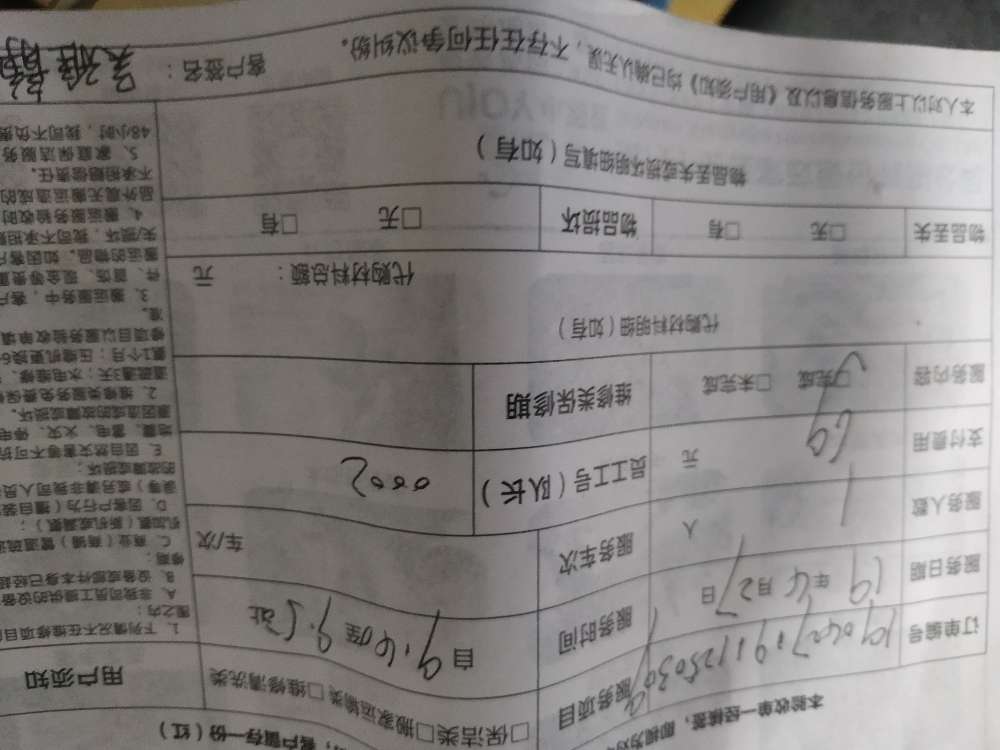 本验收单一经核签，即视为对
客户留存一份（红）
订单编号
服务项目 □保洁类□搬家运输类□维修清洗类
服务日期 19 年 4 月 27 日
服务时间 自
服务人数 1 人
服务车次 车/次
支付费用 69 元
员工工号（队长） 0002
服务内容 □完成 □未完成
维修类保修期
代购材料明细（如有）
代购材料总额： 元
物品丢失 □无 □有
物品损坏 □无 □有
物品丢失或损坏明细填写（如有）
本人对以上服务信息以及《用户须知》均已确认无误，不存在任何争议纠纷。
客户签名：
用户须知
1. 下列情况不在维修项目
围之内：
A. 非我司员工提供的设备
B. 设备或部件本身已经超
修期；
C. 商业（商铺）管道疏通
机加氟（新机或漏氟）；
D. 因客户行为（擅自装
误等）或另请非我司人员
的故障或损坏；
E. 因自然灾害等不可抗
地震、雷电、火灾、停电
素因造成的故障或损坏。
2. 维修类服务免费保
道疏通3天；水电维修、
氟1个月；压缩机更换6
修项目以服务验收单填
准。
3. 搬运服务中，客户
件、首饰、现金等贵重
搬运的物品，如因客户
失/损坏，我司不承担
4. 搬运服务验收时
品外观无搬运造成的
不承担赔偿责任。
5. 家庭保洁服务
48小时，我司不负责